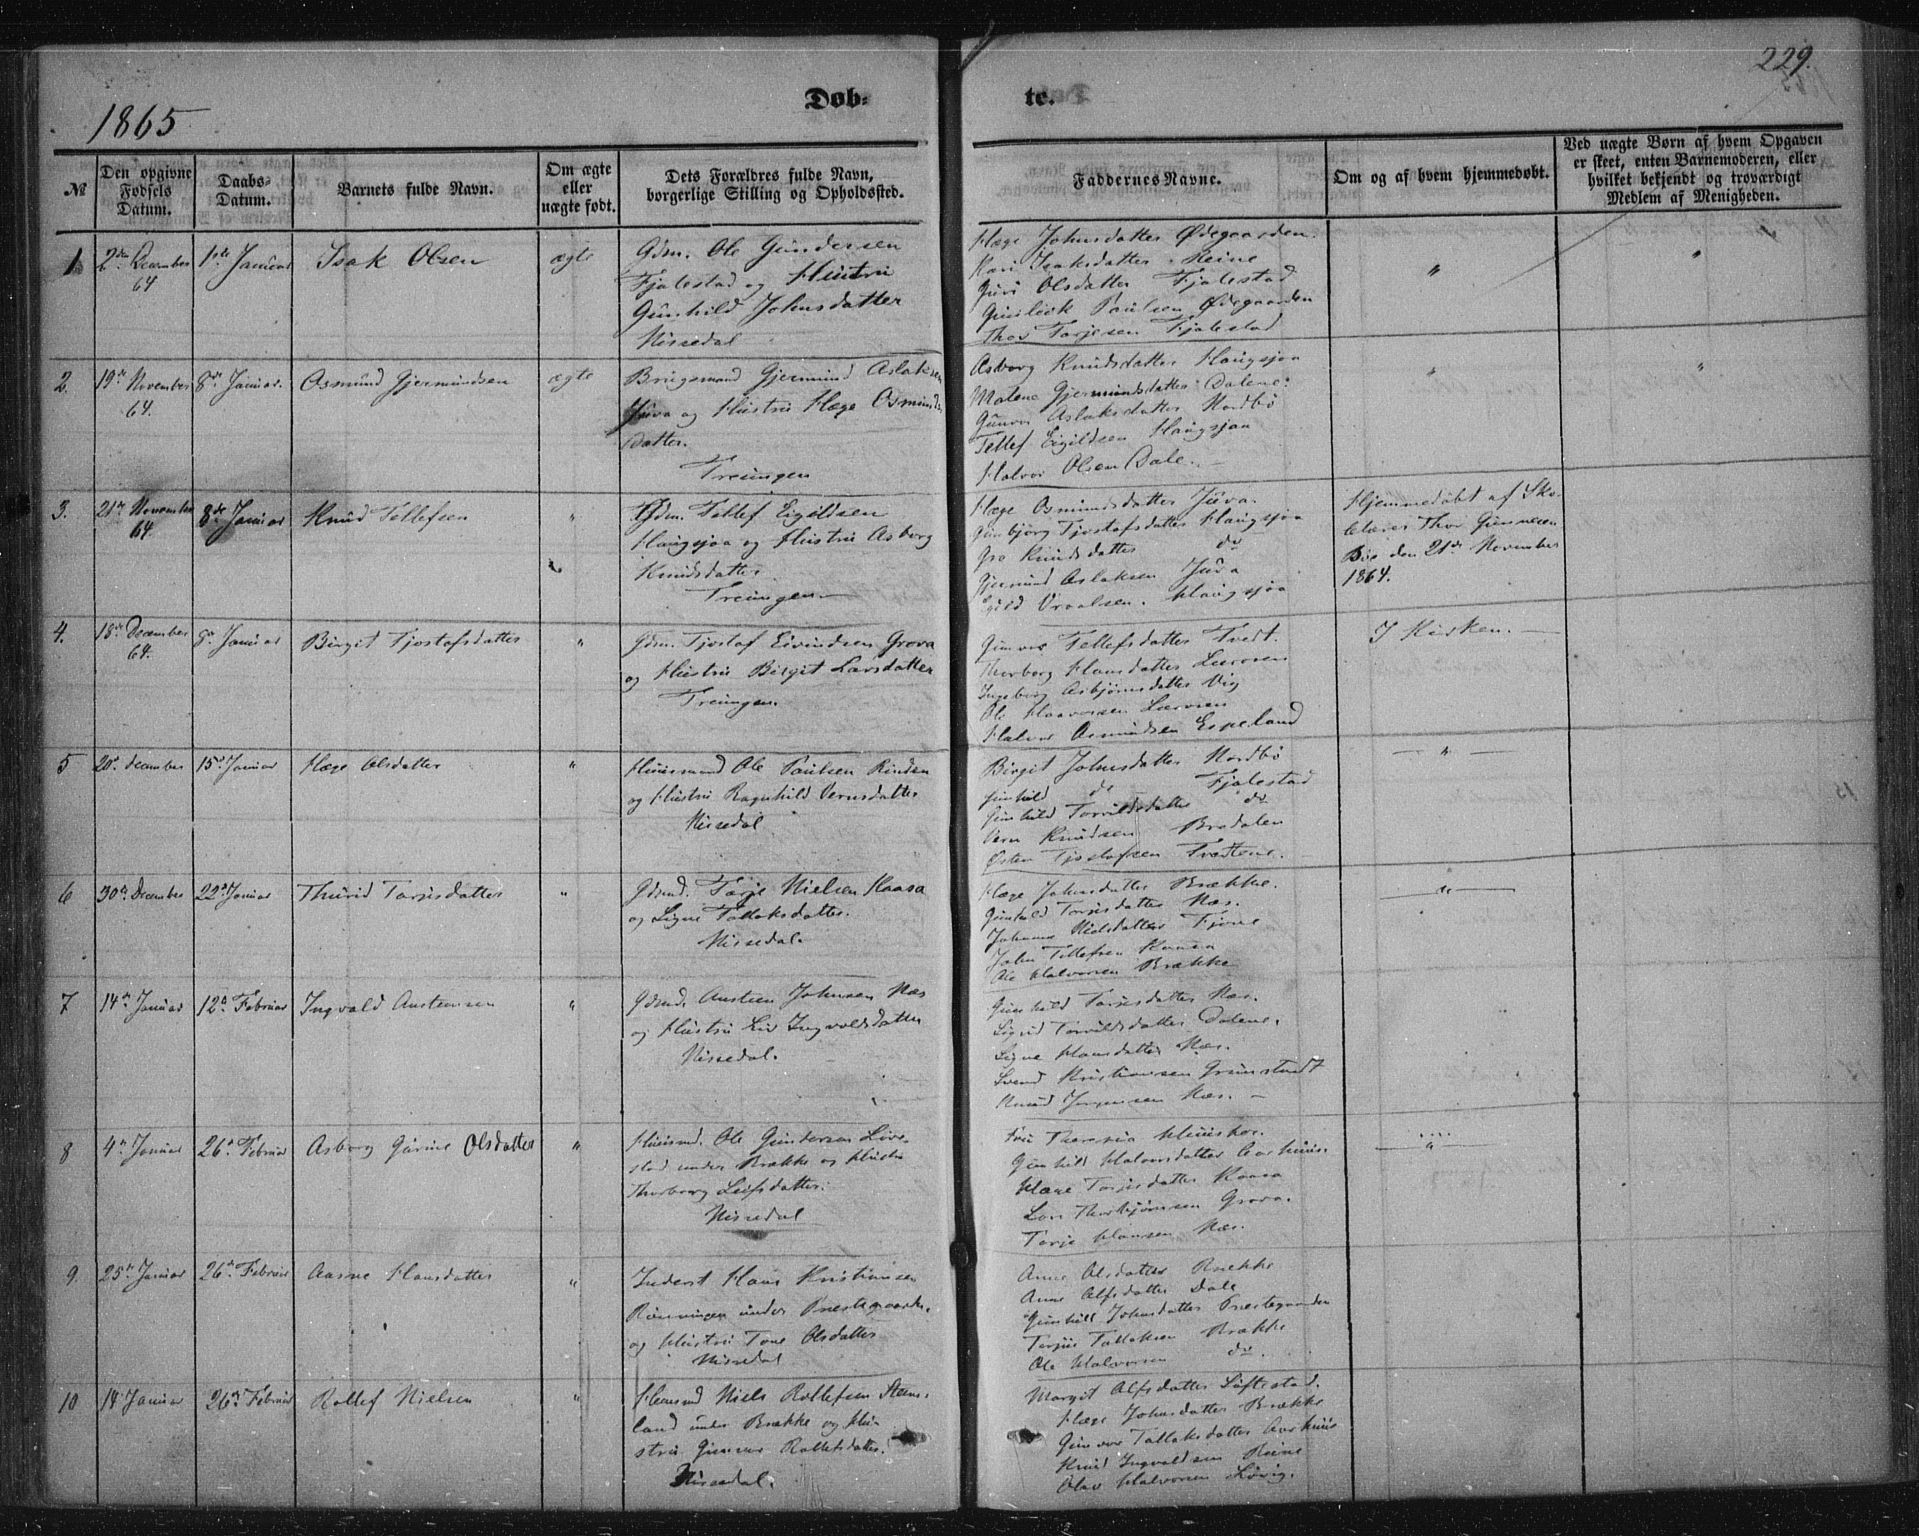 229.
1865
Døb-
te.
№
Den opgivne
Fødsels
Datum.
Daabs-
Datum.
Barnets fulde Navn.
Om ægte
eller
uægte født.
Dets Forældres fulde Navn,
borgerlige Stilling og Opholdssted.
Faddernes Navne.
Om og af hvem hjemmedøbt.
Ved uægte Børn af hvem Opgaven
er skeet, enten Barnemoderen, eller
hvilket bekjendt og troværdigt
Medlem af Menigheden.
1
2den December
64
1ste Januar
Isak Olsen
ægte
Gdm. Ole Gundersen
Fjalestad og Hustru
Gunhild Johnsdatter
Nissedal
Hæge Johnsdatter Ødegaarden
Kari Isaksdatter Heine
Guro Olsdatter Fjalestad
Gunleik Paulsen Ødegaarden
Thor Tarjesen Fjalestad
"
"
2.
19de November
64.
8de Januar.
Osmund Gjermundsen
ægte
Brugsmand Gjermund Aslaksen
Juva og Hustru Hæge Osmunds-
datter.
Treungen
Asborg Knudsdatter Haugsjaa
Malene Gjermundsdatter Dalene.
Gunvor Aslaksdatter Nordbø
Tellef Eigildsen Haugsjaa
Halvor Olsen Dale.
"
"
3.
21de November
64.
8de Januar
Knud Tellefsen
"
Gdm. Tellef Eigildsen
Haugsjaa og Hustru Asborg
Knudsdatter.
Treungen
Hæge Osmundsdatter Juva.
Gunbjørg Tjostafsdatter Haugsjaa
Gro Knudsdatter do
Gjermund Aslaksen Juva
Egild Vraalsen. Haugsjaa
Hjemmedøbt af Sko-
elærer Thor Gunnesen
Bøe den 21de November
1864.
4.
18de December
64.
8de Januar
Birgit Tjostafsdatter
"
Gdm. Tjostaf Eivindsen Grova
og Hustru Birgit Larsdatter
Treungen.
Gunvor Tellefsdatter Tvedt.
Thorborg Hansdatter
Ingeborg Asbjørnsdatter Vig
Ole Haavorsen
Halvor Osmundsen Espeland
I Kirken.
5
20de December
15de Januar
Hæge Olsdatter
"
Huusmand Ole Paulsen Rinden
og Hustru Ragnhild Vernsdatter
Nissedal
Birgit Johnsdatter Nordbø
Gunhild do Fjalestad
Gunhild Torvildsdatter do
Vern Knudsen Brødalen
Østen Tjostafsen Tvedtene.
"
6
30te December
22de Januar
Thurid Tarjesdatter
"
Gdmd. Tarje Nielsen Kaasa
og Signe Tallaksdatter.
Nissedal.
Hæge Johnsdatter Brække.
Gunhild Torjusdatter Næs.
Johanne Nielsdatter Fjone
John Tellefsen Kaasa
Ole Halvorsen Brække
"
7
14de Januar
12te Februar
Ingvald Austensen
"
Gdmd. Austen Johnsen Næs
og Hustru Liv Ingvoldsdatter
Nissedal.
Gunhild Tarjusdatter Næs.
Sigrid Torvildsdatter Dalene.
Signe Hansdatter Næs.
Svend Kristiansen Grimstvedt
Knud Jørgensen Næs.
8
4de Januar
26de Februar
Asborg Gurine Olsdatter
"
Huusmd. Ole Gundersen Live-
stad under Brække og Hustru
Thorborg Leifsdatter.
Nissedal
Fru Theresia
Gunhild Halvorsdatter Aarhuus.
Hæge Torjusdatter Kaasa
Lars Thorbjørnsen Grova.
Tarje Hansen Næs.
"
9.
25de Januar
26de Februar
Aasne Hansdatter
"
Inderst Hans Kristiansen
Rønningen under Præstegaarden
og Hustru Tone Olsdatter
Nissedal
Anne Olsdatter Brække
Anne Alfsdatter Dale
Gunhild Johnsdatter Præstegaarden
Torjus Tallaksen Brække
Ole Halvorsen do.
10
14 Januar
26de Februar
Rollef Nielsen
"
Huusmd Niels Rollefsen Steens-
land under Brække og Hu-
stru Gunvor Rollefsdatter.
Nissedal.
Margit Alfsdatter Tuftestad.
Hæge Johnsdatter Brække
Gunvor Tallaksdatter Aarhuus
Knud Ingvaldsen Reine
Olav Halvorsen Løvig.